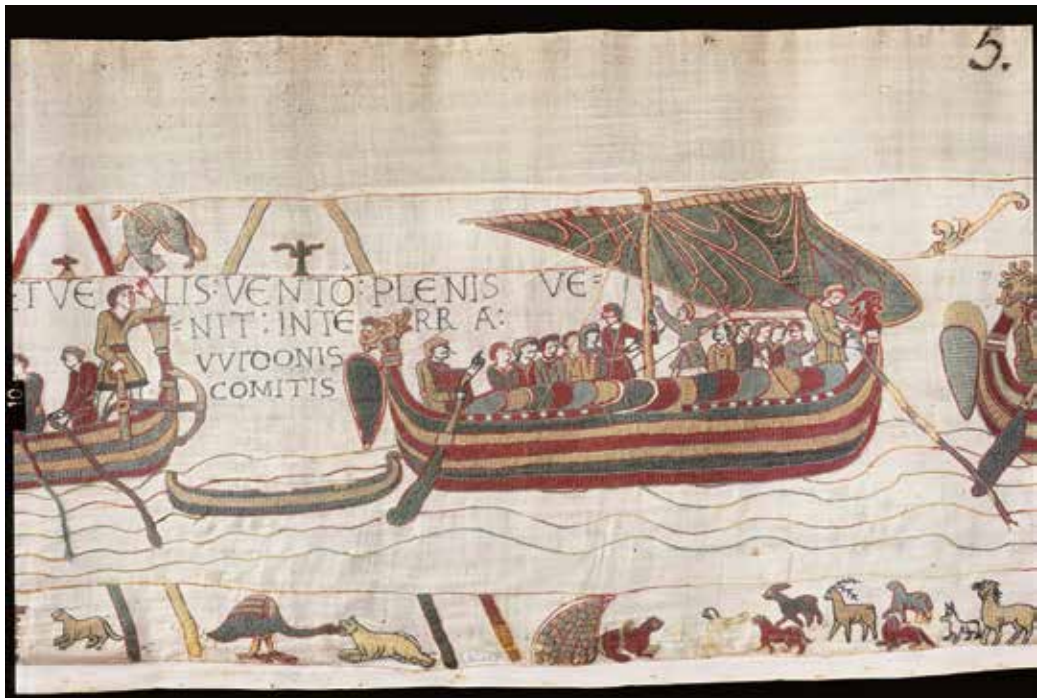 5.
ET VE LIS : VENTO : PLENIS VE=
=NIT : INTE RR A :
VVIDONIS
COMITIS
10